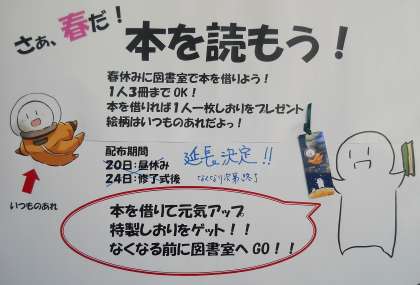 さぁ、春だ！
本を読もう！
春休みに図書室で本を借りよう！
1人3冊まで OK！
本を借りれば1人一枚しおりをプレゼント
絵柄はいつものあれだよっ！
配布期間
20日：昼休み
24日：修了式後
延長決定!!
なくなり次第終了
いつものあれ
本を借りて元気アップ
特製しおりをゲット！！
なくなる前に図書室へ GO！！